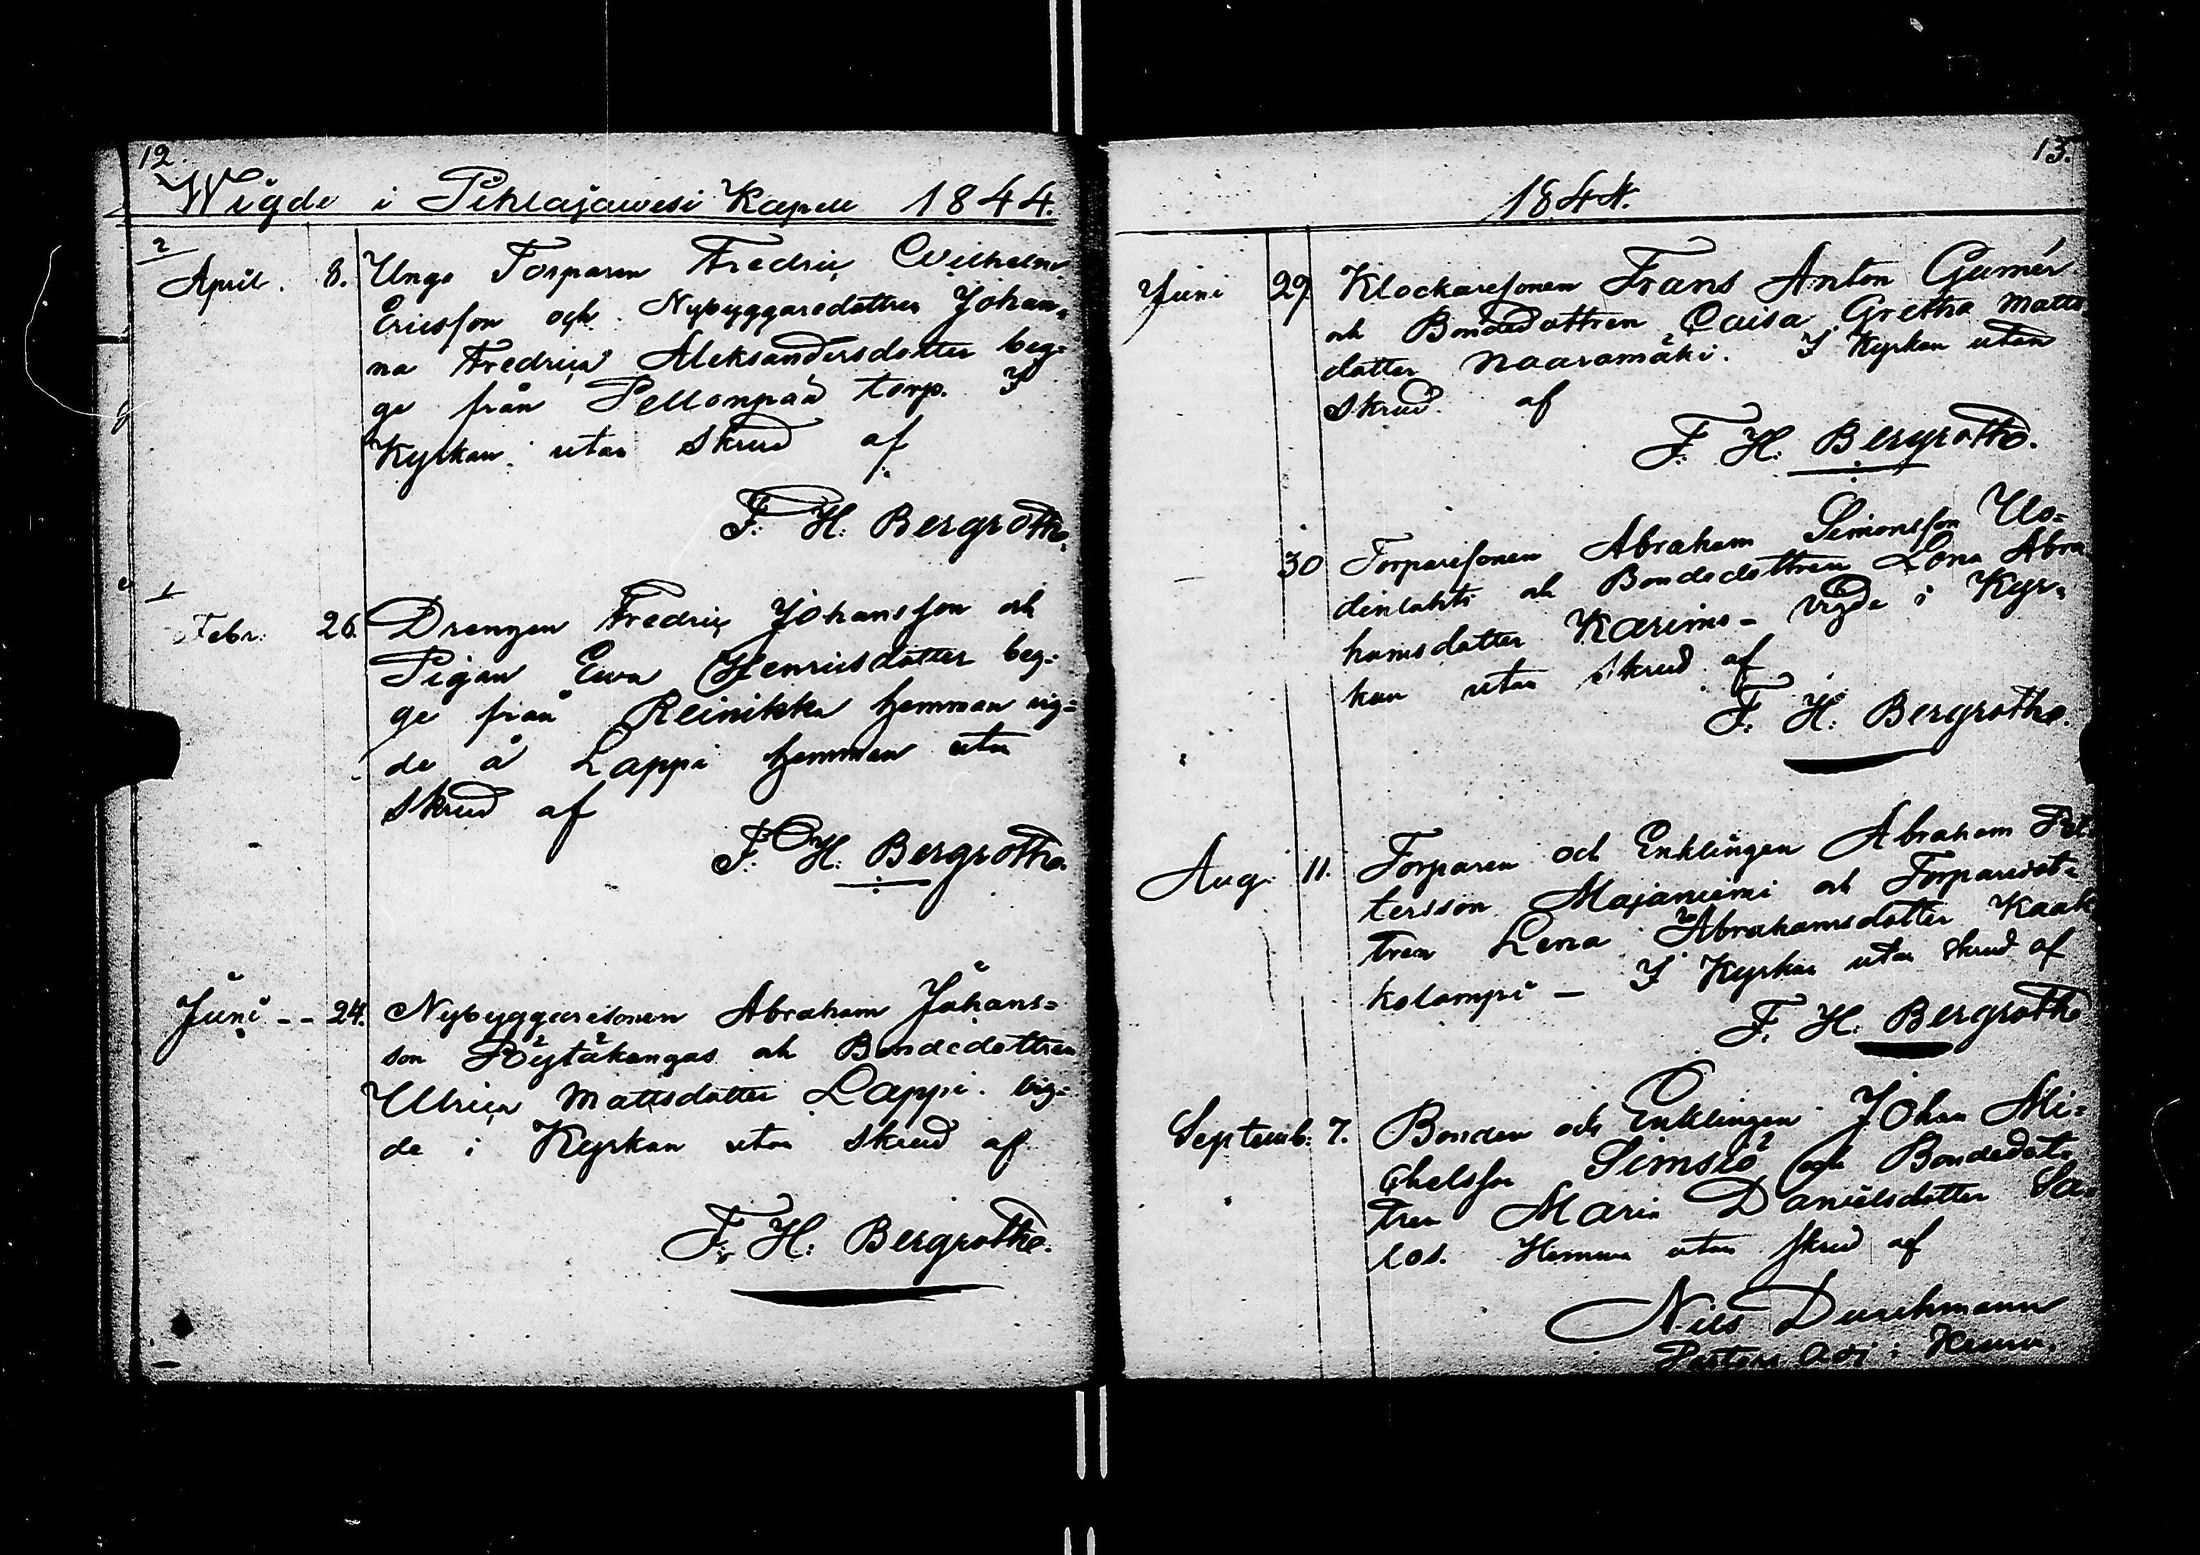 12.
Wigde i Pihlajawesi Kapell 1844.
2
April. 8. Unge Torparen Fredric Wilhelm
Ericsson och Nybyggaredottren Johan=
na Fredrica Aleksandersdotter beg=
ge från Pellonpää torp. I
Kyrkan utan Skrud af
F. H. Bergroth.
1
Febr. 26. Drengen Fredric Johansson och
Pigan Ewa Henricsdotter beg=
ge från Reinikka hemman vig=
de å Lappi hemman utan
Skrud af
F. H. Bergroth.
Juni -- 24. Nybyggaresonen Abraham Johans=
son Pöytäkangas och Bondedottren
Ulrica Mattsdotter Lappi. vig=
de i Kyrkan utan Skrud af
F. H. Bergroth.
13.
1844.
Juni 29 Klockaresonen Frans Anton Gumér
och Bondedottren Caisa Gretha Matts
dotter Naaramäki. I Kyrkan utan
Skrud af
F. H. Bergroth.
30 Torparesonen Abraham Simonsson Uo=
dinlahti och Bondedottren Lena Abra
hamsdotter Karimo - vigde i Kyr=
kan utan skrud af
F. H. Bergroth.
Aug. 11. Torparen och Enklingen Abraham Pet=
tersson Majaniemi och Torparedot=
tren Lena Abrahamsdotter Kaak
kolampi - I Kyrkan utan skrud af
F. H. Bergroth
Septemb. 7. Bonden och Enklingen Johan Mi=
chelsson Simsiö och Bondedot=
tren Maria Danielsdotter Sa=
los. Hemma utan skrud af
Nils Durchmann
Pastors Adj. i Keuru.